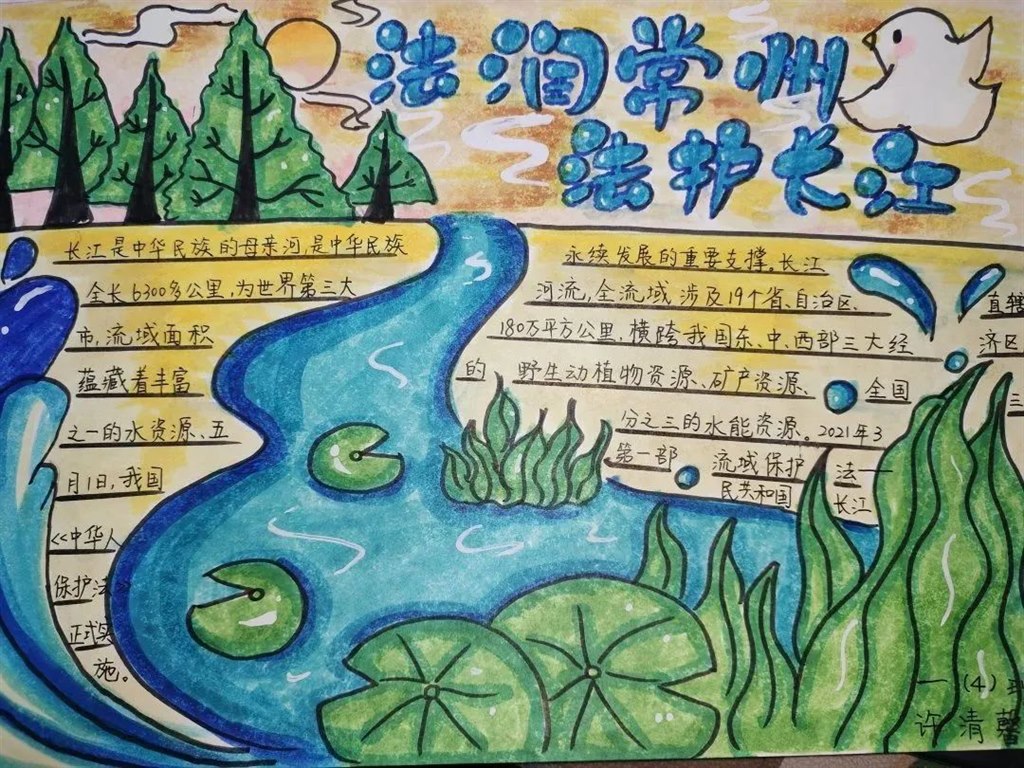 法润常州
法护长江
长江是中华民族的母亲河,是中华民族 永续发展的重要支撑。长江
全长6300多公里,为世界第三大 河流,全流域涉及19个省、自治区、 直辖
市,流域面积 180万平方公里,横跨我国东、中、西部三大经 济区
蕴藏着丰富 的 野生动植物资源、矿产资源、 全国 三
之一的水资源、五 分之三的水能资源。2021年3
月1日,我国 第一部 流域保护 法——
<<中华人 民共和国 长江
保护法>>
正式实
施。
一(4)
许清